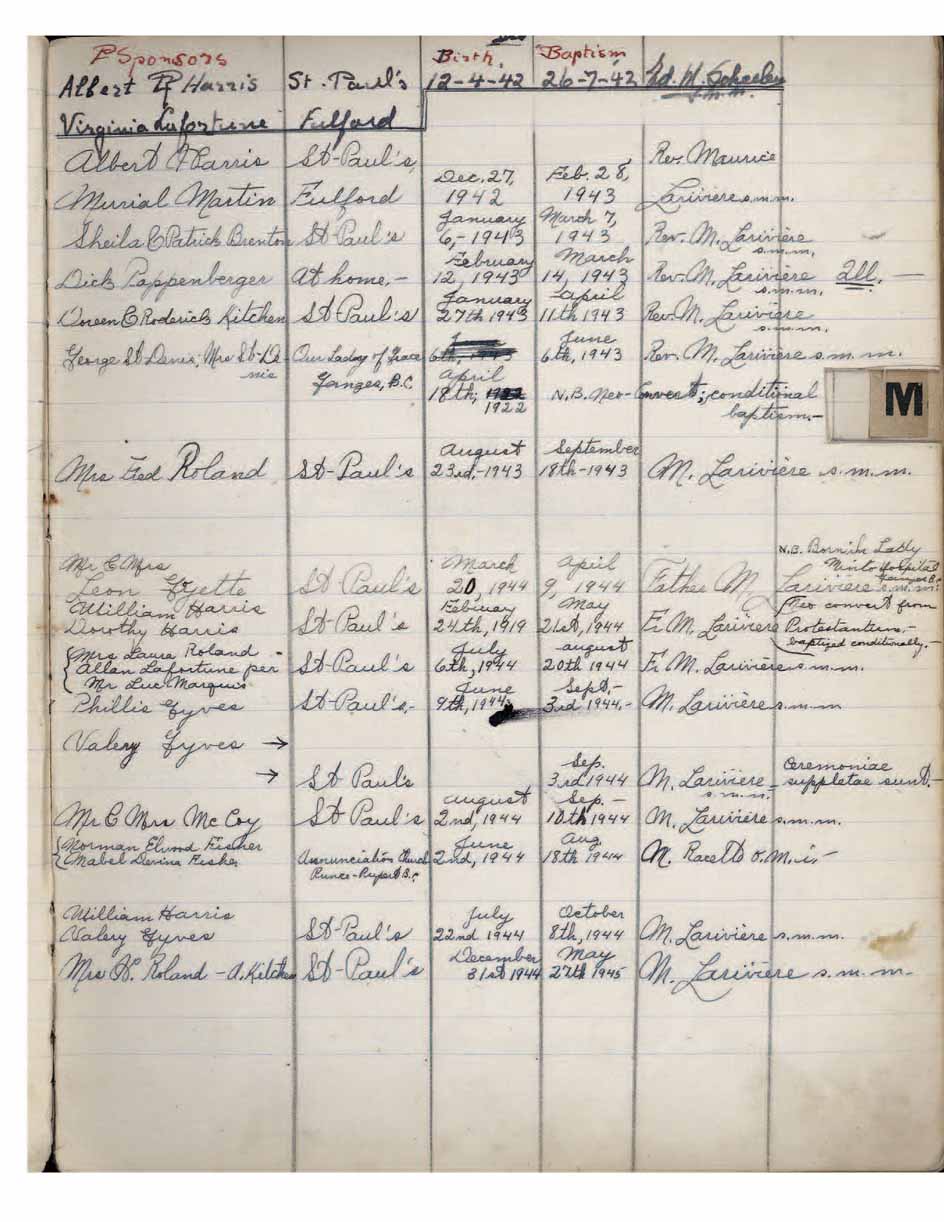 Sponsors Birth, Baptism
Albert Harris St. Paul's 12-4-42 26-7-42 Ed. M. Scheelen
s.m.m.
Virginia Lafortune Fulford
Albert Harris St-Paul's, Dec. 27, Feb. 28, Rev. Maurice
Murial Martin Fulford 1942 1943 Larivière s.m.m.
January March 7,
Sheila & Patrick Brenton St-Paul's 6,-1943 1943 Rev. M. Larivière
s.m.m.
February March
Dick Pappenberger At home,- 12, 1943 14, 1943 Rev. M. Larivière Ill. —
s.m.m.
January April
Doreen & Roderick Kitchen St-Paul's 27th 1943 11th 1943 Rev. M. Larivière
s.m.m.
June
George St-Denis; Mrs St-De- Our Lady of Grace 6th, 1943 6th, 1943 Rev. M. Larivière s.m.m.
nis Ganges, B.C. April
18th, 1922 N.B. Neo-Convert; conditional
1922 baptism.-
M
August September
Mrs Fred Roland St-Paul's 23rd,-1943 18th-1943 M. Larivière s.m.m.
N.B. Born in Lady
Minto Hospital
Ganges B.C.
Mr & Mrs March April
Leon Gyette St Paul's 20, 1944 9, 1944 Father M. Larivière s.m.m.
William Harris February May Neo convert from
Dorothy Harris St-Paul's 24th, 1919 21st, 1944 Fr M. Larivière Protestantism,-
baptized conditionally.-
Mrs Laura Roland - July August
Allan Lafortune per St-Paul's 6th, 1944 20th 1944 Fr M. Larivière s.m.m.
Mr Luc Marquis
June Sept.-
Phillis Gyves St-Paul's,- 9th, 1944 3rd 1944.- M. Larivière s.m.m
Valery Gyves →
→ St Paul's Sep. 3rd 1944 M. Larivière - Ceremoniae
s.m.m. suppletae sunt.-
August Sep.-
Mr & Mrs McCoy St Paul's 2nd, 1944 10th 1944 M. Larivière s.m.m.
Norman Elwood Fisher June Aug.
Mabel Devina Fisher Annunciation Church 2nd, 1944 18th 1944 M. Racette o.m.i.-
Prince-Rupert B.C.
William Harris July October
Valery Gyves St-Paul's 22nd 1944 8th, 1944 M. Larivière s.m.m.
December May
Mrs H. Roland - A. Kitchen St-Paul's 31st 1944 27th 1945 M. Larivière s.m.m-